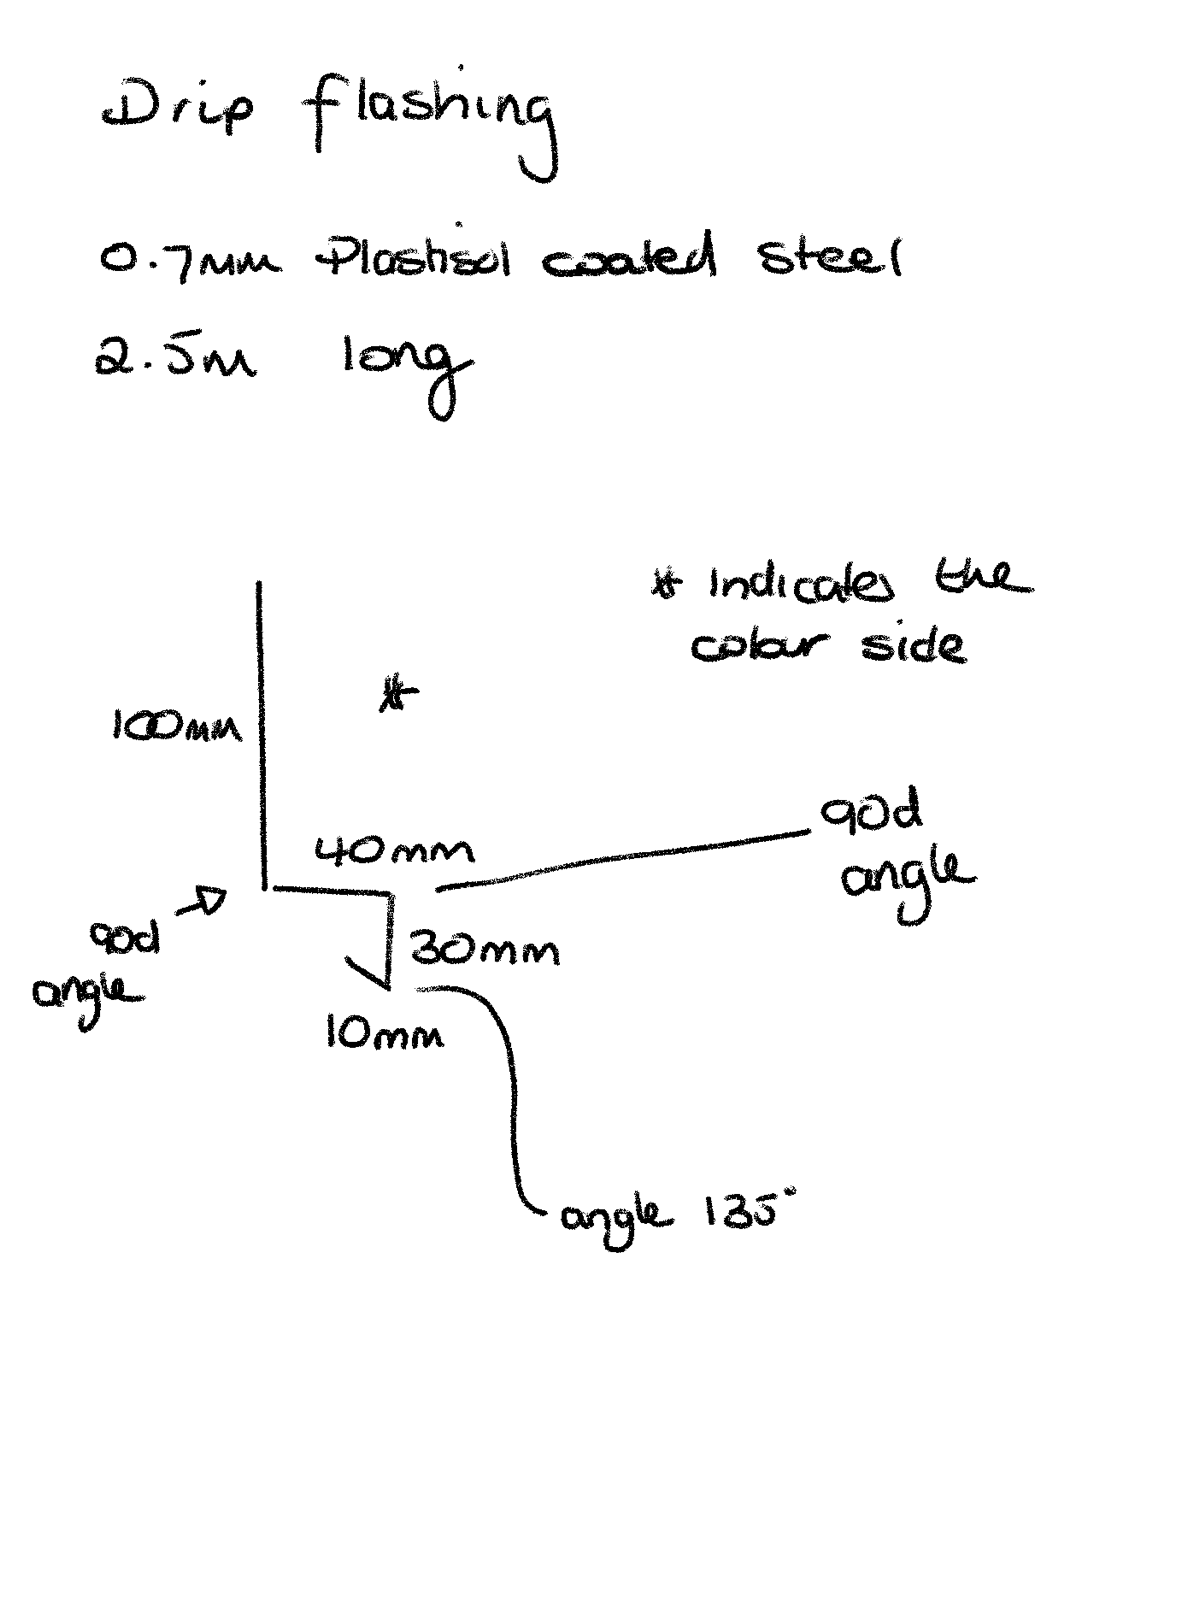 Drip flashing
0.7mm Plastisol coated steel
2.5m long
* Indicates the
colour side
*
100mm
40mm
90d
angle
90d
angle
30mm
10mm
angle 135°